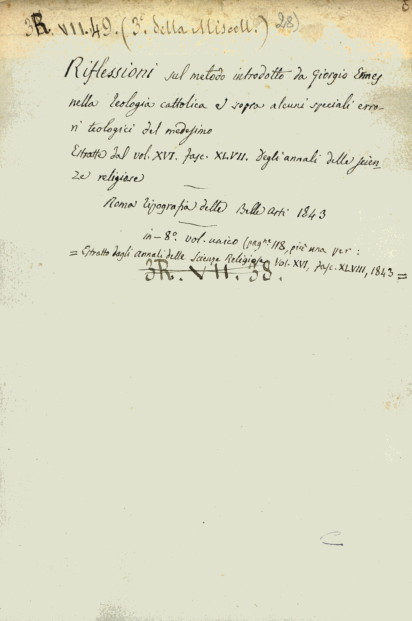 3R. VII. 49. (3º. della Miscell.) 28)
Riflessioni sul metodo introdotto da Giorgio Ermes
nella teologia cattolica e sopra alcuni speciali erro-
ri teologici del medesimo
Estratte dal vol. XVI. fasc. XLVII. degli annali delle scien-
ze religiose
Roma tipografia delle Belle Arti 1843
in-8º. vol. unico (pagne 118, più una per:
= Estratto degli annali delle Scienze Religiose, Vol. XVI, Fasc. XLVIII, 1843 =
3R. VII. 38.